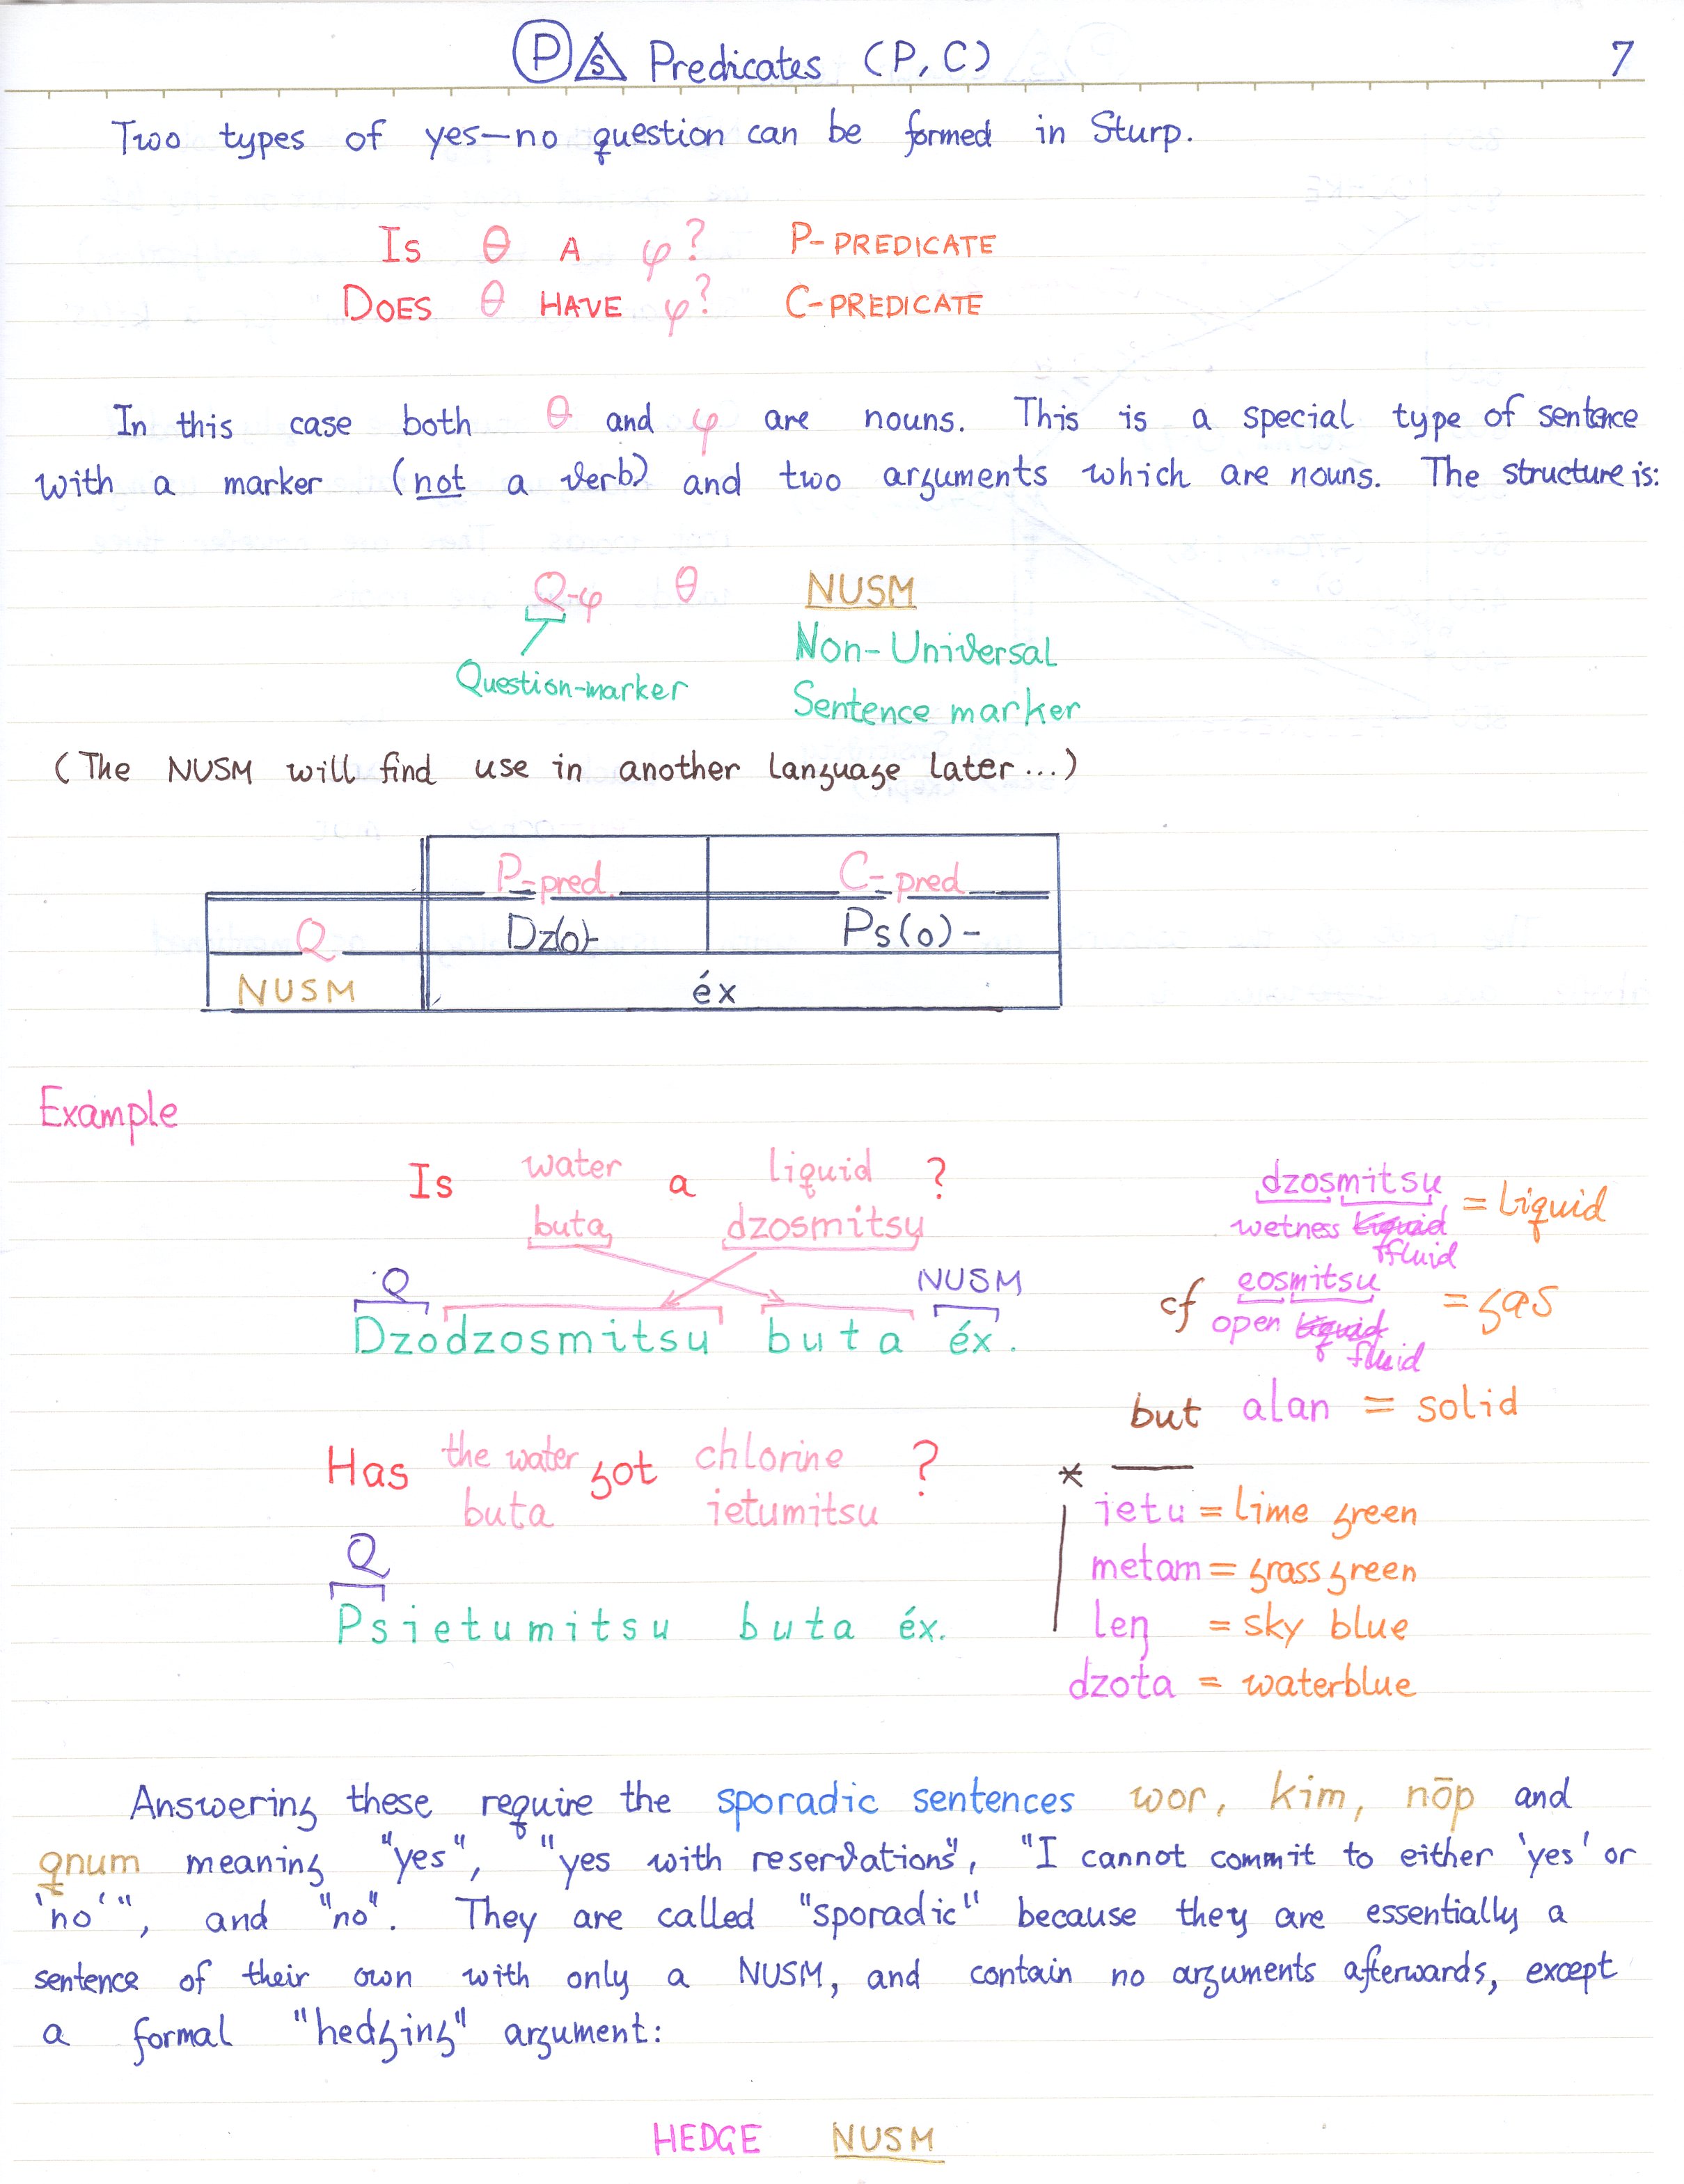 P S Predicates (P, C) 7
Two types of yes–no question can be formed in Sturp.
Is θ A φ? P-PREDICATE
DOES θ HAVE φ? C-PREDICATE
In this case both θ and φ are nouns. This is a special type of sentence
with a marker (not a verb) and two arguments which are nouns. The structure is:
Q-φ θ NUSM
Question-marker
Non-Universal
Sentence marker
(The NUSM will find use in another language later...)
P-pred. C-pred
Q Dz(o)- Ps(o)-
NUSM éx
Example
Is water a liquid ?
buta dzosmitsu
Q NUSM
Dzodzosmitsu buta éx.
dzosmitsu = Liquid
wetness liquid
fluid
cf eosmitsu = gas
open liquid
fluid
but alan = solid
Has the water got chlorine ?
buta ietumitsu
Q
Psietumitsu buta éx.
*
ietu = lime green
metam = grass green
leŋ = sky blue
dzota = waterblue
Answering these require the sporadic sentences wor, kim, nōp and
qnum meaning "yes", "yes with reservations", "I cannot commit to either 'yes' or
'no'", and "no". They are called "sporadic" because they are essentially a
sentence of their own with only a NUSM, and contain no arguments afterwards, except
a formal "hedging" argument:
HEDGE NUSM